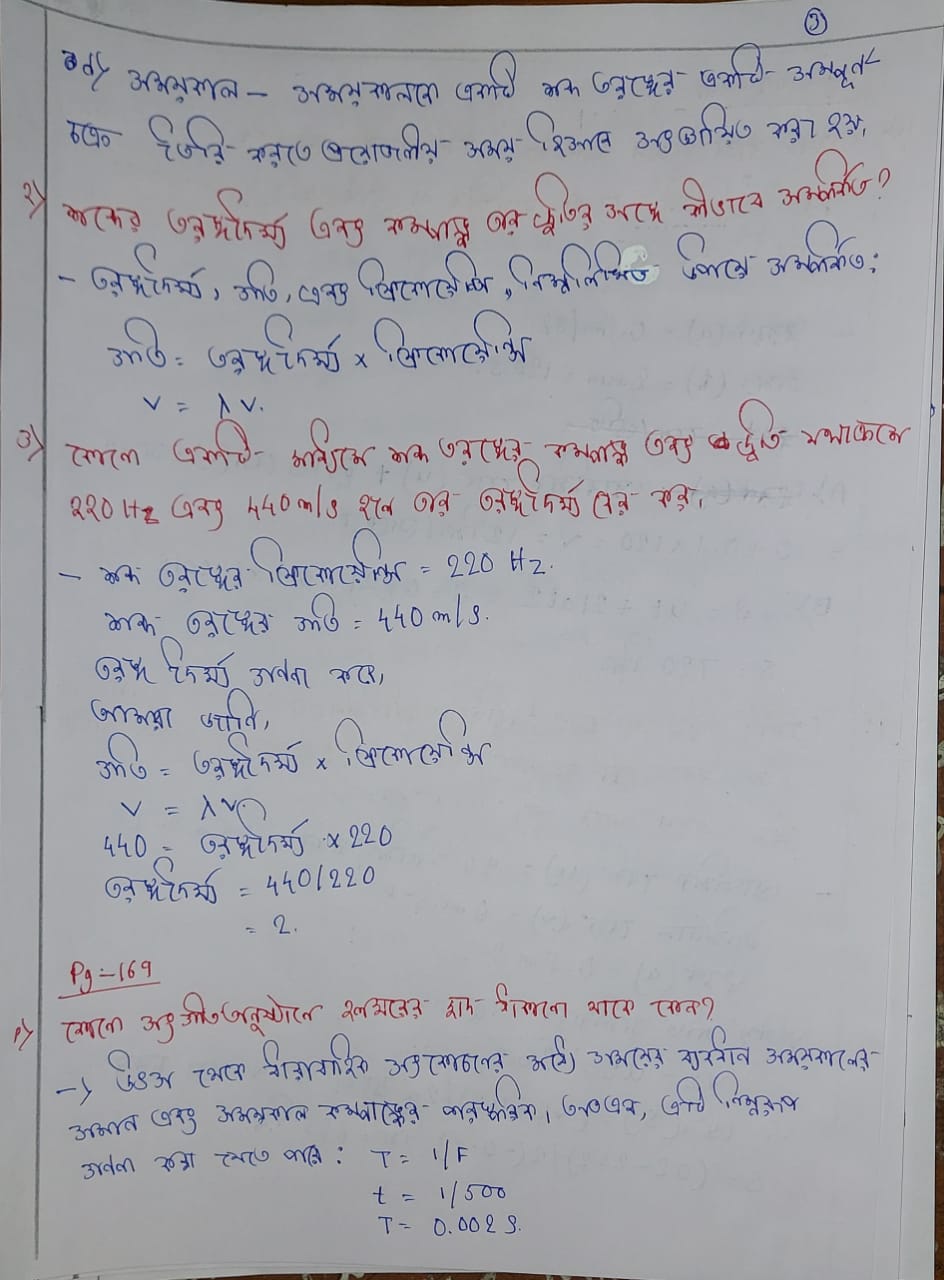 3
d) সময়কাল – সময়কালকে একটি শব্দ তরঙ্গের একটি সম্পূর্ণ
চক্র তৈরি করতে প্রয়োজনীয় সময় হিসাবে সংজ্ঞায়িত করা হয়,
2) শব্দের তরঙ্গদৈর্ঘ্য এবং কম্পাঙ্ক তার দ্রুতির সঙ্গে কীভাবে সম্পর্কিত?
– তরঙ্গদৈর্ঘ্য, গতি, এবং ফ্রিকোয়েন্সি, নিম্নলিখিত হিসাবে সম্পর্কিত:
গতি = তরঙ্গদৈর্ঘ্য x ফ্রিকোয়েন্সি
v = λ v.
3) কোনো একটি মাধ্যমে শব্দ তরঙ্গের কম্পাঙ্ক এবং দ্রুতি যথাক্রমে
220 Hz এবং 440 m/s হলে তার তরঙ্গদৈর্ঘ্য বের কর,
– শব্দ তরঙ্গের ফ্রিকোয়েন্সি = 220 Hz.
শব্দ তরঙ্গের গতি = 440 m/s.
তরঙ্গ দৈর্ঘ্য গণনা করে,
আমরা জানি,
গতি = তরঙ্গদৈর্ঘ্য x ফ্রিকোয়েন্সি
v = λ v.
440 = তরঙ্গদৈর্ঘ্য x 220
তরঙ্গদৈর্ঘ্য = 440/220
= 2.
Pg – 169
1) কোনো সংগীতানুষ্ঠানে হলঘরের ছাদ বাঁকানো থাকে কেন?
→ উৎস থেকে ধারাবাহিক সংকোচনের মধ্যে সময়ের ব্যবধান সময়কালের
সমান এবং সময়কাল কম্পাঙ্কের পারস্পরিক, অতএব, এটি নিম্নরূপ
গণনা করা যেতে পারে: T = 1/F
t = 1/500
T = 0.002 S.